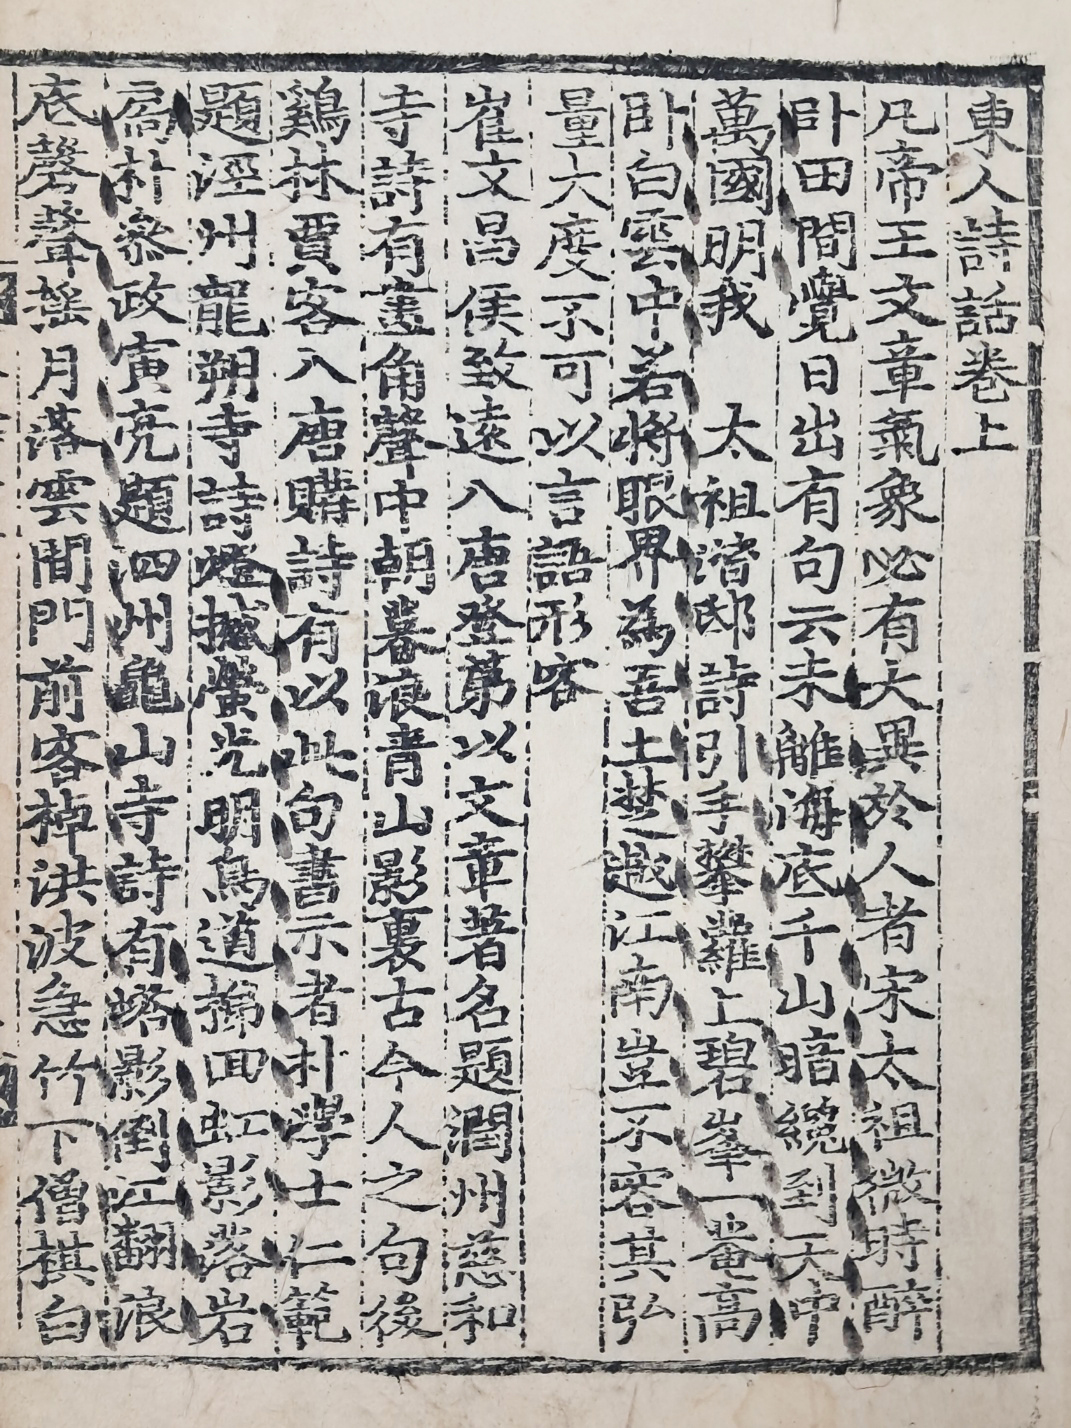 東人詩話卷上
凡帝王文章氣象必有大異於人者宋太祖微時醉
卧田間覺日出有句云未離海底千山暗纔到天中
萬國明我　太祖潛邸詩引手攀蘿上碧峯一菴高
卧白雲中若將眼界為吾土楚越江南豈不容其弘
量大度不可以言語形容
崔文昌侯致遠入唐登第以文章著名題潤州慈和
寺詩有畫角聲中朝暮浪青山影裏古今人之句後
鷄林賈客入唐購詩有以此句書示者朴學士仁範
題涇州龍朔寺詩燈撼螢光明鳥道梯回虹影落岩
扃朴參政寅亮題泗州龜山寺詩有塔影倒江翻浪
底磬聲搖月落雲間門前客棹洪波急竹下僧棋白